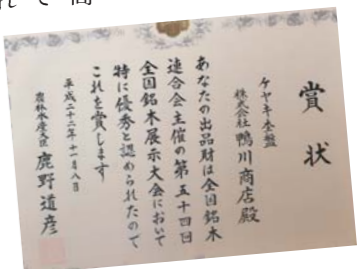 れて商
賞状
ケヤキ杢盤
株式会社 鴨川商店殿
あなたの出品財は全国銘木
連合会主催の第五十四回
全国銘木展示大会において
特に優秀と認められたので
これを賞します
平成二十二年十一月八日
農林水産大臣 鹿野道彦